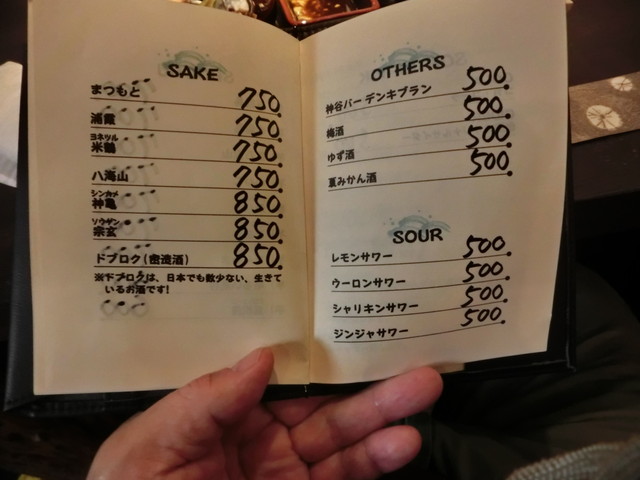 SAKE
まつもと 750.
浦霞 750.
ヨネツル
米鶴 750.
八海山 750.
シンカメ
神亀 850.
ソウゲン
宗玄 850.
ドブロク(密造酒) 850.
※ドブロクは、日本でも数少ない、生きて
いるお酒です!
OTHERS
神谷バー デンキブラン 500.
梅酒 500.
ゆず酒 500.
夏みかん酒 500.
SOUR
レモンサワー 500.
ウーロンサワー 500.
シャリキンサワー 500.
ジンジャサワー 500.